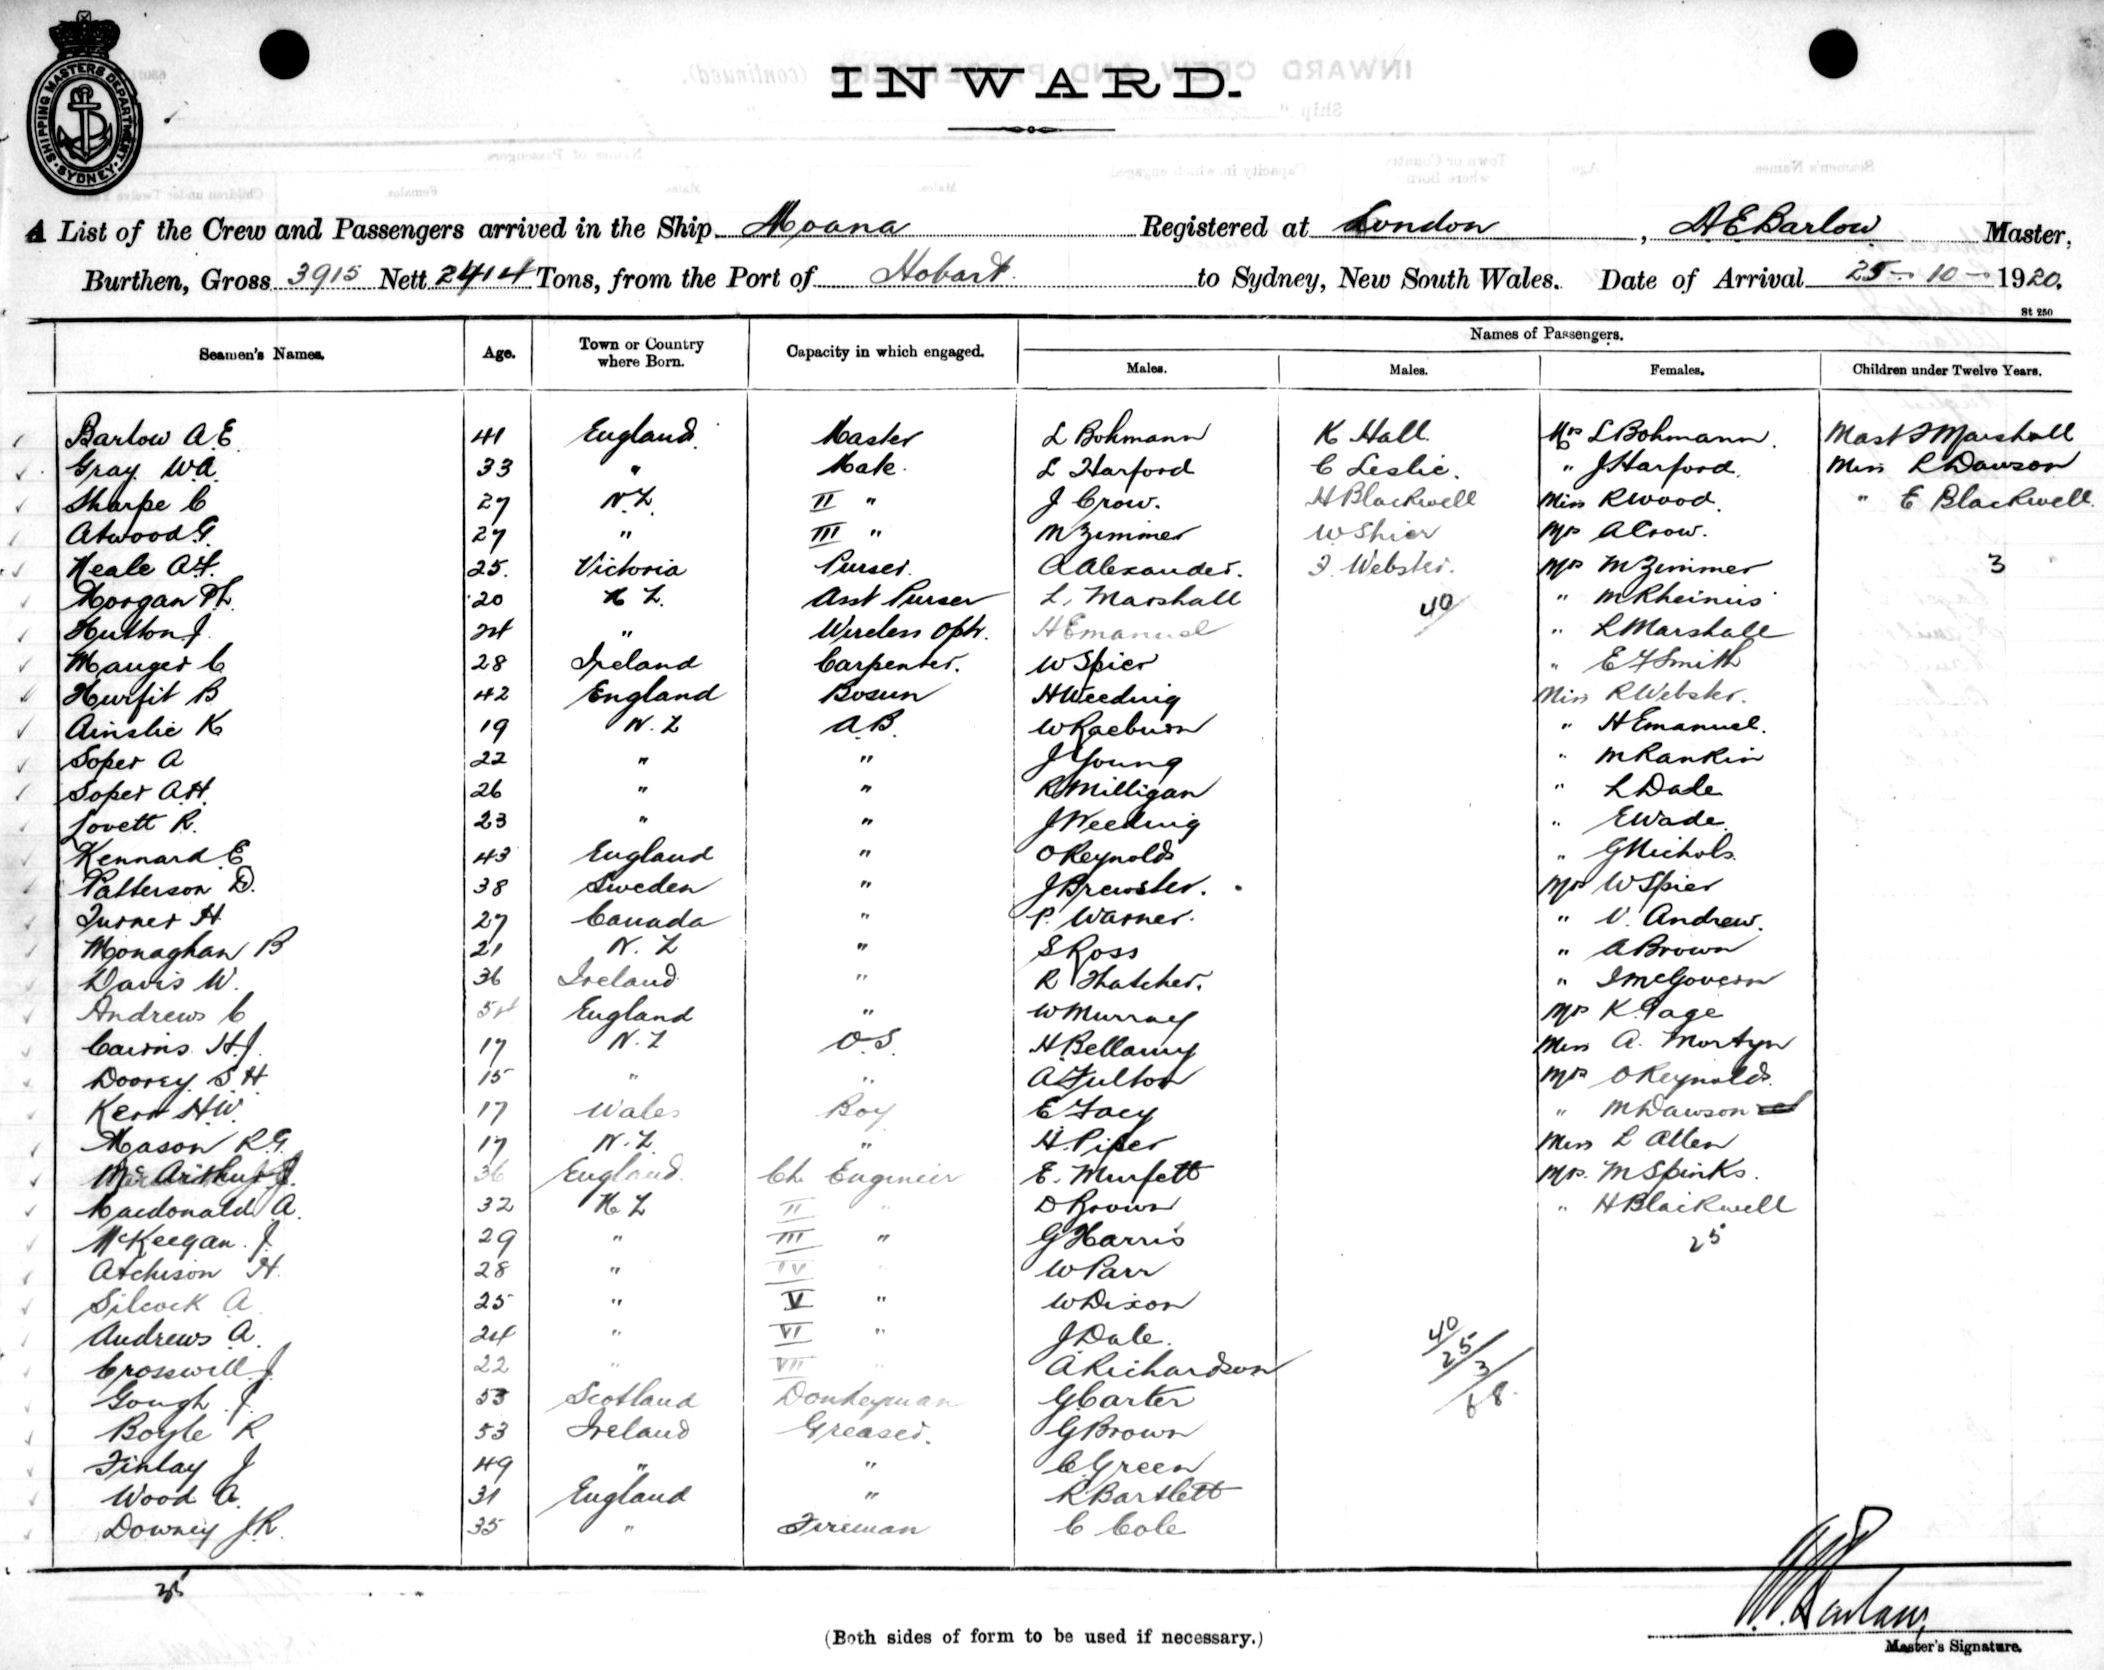 SHIPPING MASTERS DEPARTMENT SYDNEY
INWARD.
A List of the Crew and Passengers arrived in the Ship Moana Registered at London, A.E. Barlow Master,
Burthen, Gross 3915 Nett 2414 Tons, from the Port of Hobart to Sydney, New South Wales. Date of Arrival 25-10-1920.
St 250
Names of Passengers.
Seamen's Names. Age. Town or Country where Born. Capacity in which engaged. Males. Males. Females. Children under Twelve Years.
Barlow A.E. 41 England Master L Bohmann K Hall Mrs L Bohmann. Mast F Marshall
Gray W.A. 33 " Mate. L Harford C Leslie. " J Harford. Miss R Dawson
Sharpe C 27 N.Z. II " J Crow. H Blackwell Miss R Wood. " E Blackwell.
Atwood G. 27 " III " M Zimmer W Shier Mrs A Crow.
Neale A.F. 25. Victoria Purser. A Alexander. F. Webster. Mrs M Zimmer 3
Morgan P.L. 20 N Z. Asst Purser L. Marshall 40 " M Rheinus
Hutton J. 24 " Wireless Optr. H Emanuel " L Marshall
Mauger C 28 Ireland Carpenter. W Spier " E F Smith
Hurfit B 42 England Bosun H Weeding Miss R Webster.
Ainslie K 19 N.Z A.B. W Raeburn " H Emanuel.
Soper A 22 " " J Young " M Rankin
Soper A.H. 26 " " R Milligan " L Dale
Lovett R. 23 " " J Weeding " E Wade.
Kennard E 43 England " O Reynolds " G Nichols.
Patterson D. 38 Sweden " J Brewster. Mrs W Spier
Turner H 27 Canada " P. Warner. " V. Andrew.
Monaghan B 21 N.Z " S Ross " A Brown
Davis W. 36 Ireland " R Thatcher. " J McGovern
Andrews C 54 England " W Murray Mrs K. Page
Cairns H.J. 17 N.Z O.S. H. Bellamy Miss A. Martyn
Doorey S.H 15 " " A Fulton Mrs O Reynolds.
Kerr H.W. 17 Wales Boy E Facy " M Dawson
Mason R.G. 17 N.Z. " H. Piper Miss L Allen
McArthur J. 36 England. Ch. Engineer E. Murfett Mrs. M Spinks.
Macdonald A. 32 N Z II " D Brown " H Blackwell
McKeegan. J. 29 " III " G Harris 25
Atchison H. 28 " IV " W Parr
Silcock A. 25 " V " W Dixon
Andrews A. 24 " VI " J Dale. 40
Crosswill J. 22 " VII " A Richardson 25 3
Gough J. 53 Scotland Donkeyman G Carter 68.
Boyle R 53 Ireland Greaser. G Brown
Finlay J 49 " " C. Green
Wood A. 31 England " R Bartlett
Downey J.R. 35 " Fireman C Cole
35
(Both sides of form to be used if necessary.)
Barlow
Master's Signature.